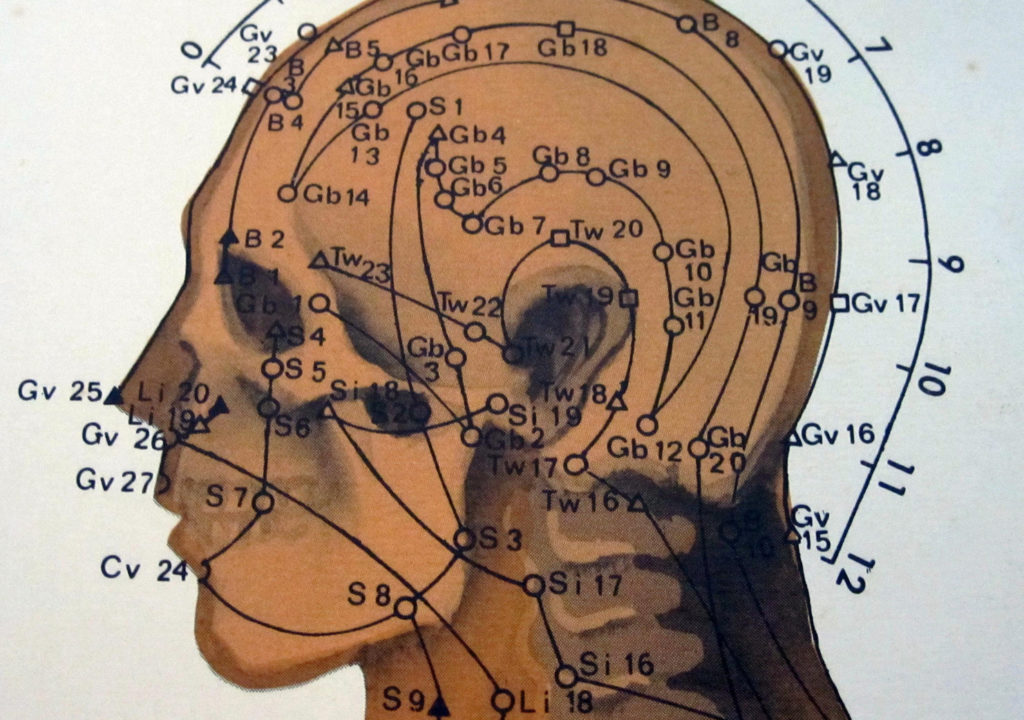 0
Gv
23
Gv 24
B
3
B 4
B 5
Gb
16
Gb 17
Gb 18
B
8
Gv
19
7
Gb
15
Gb
13
S 1
Gb 4
Gb 5
Gb 6
Gb 7
Gb 8
Gb 9
8
Gv
18
Gb 14
B 2
B 1
Tw 20
Tw 23
Gb
10
9
Gb 1
Tw 22
Tw 19
Gb
11
Gb
19
B
9
Gv 17
S 4
Tw 21
Gb
3
S 5
10
Gv 25
Li 20
Li 19
Gv 26
Si 18
S 2
S 6
Si 19
Tw 18
Gb 2
Gb 12
Gb
20
Gv 16
Tw 17
11
Gv 27
S 7
Tw 16
B
10
Gv
15
S 3
12
Cv 24
S 8
Si 17
Si 16
S 9
Li 18